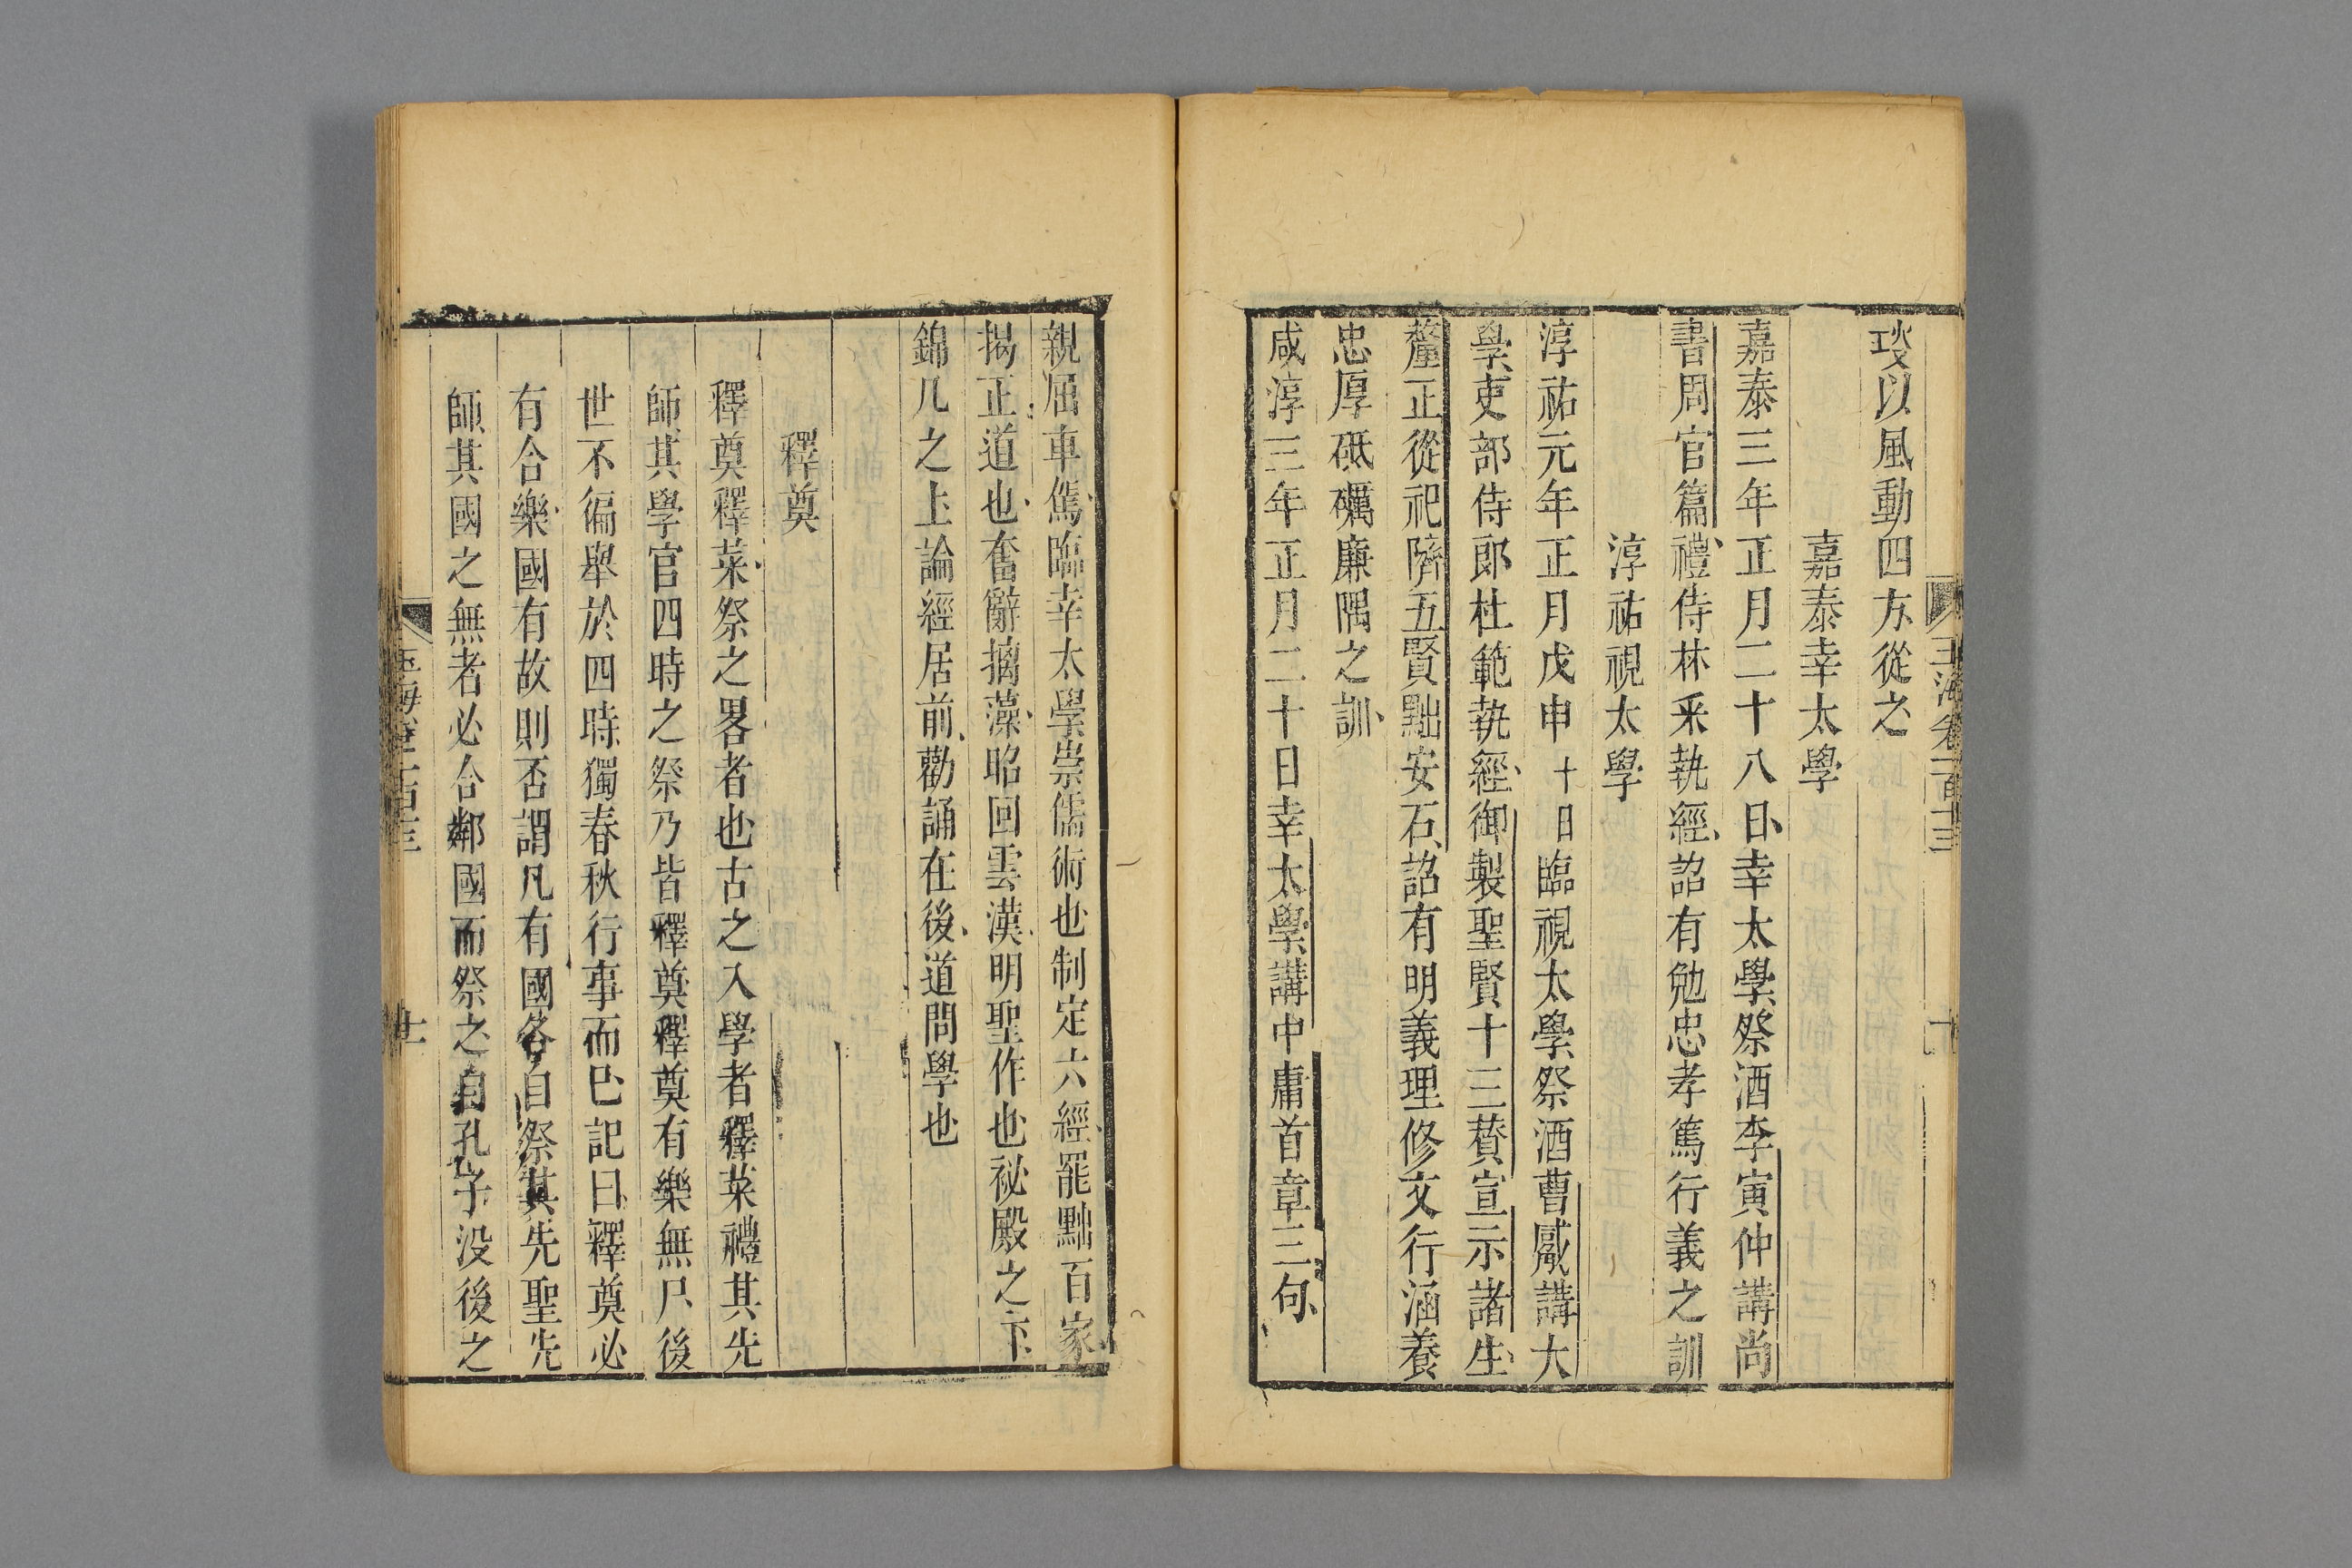 玉海卷一百十三
十
琰以風動四方從之
嘉泰幸太學
嘉泰三年正月二十八日幸太學祭酒李寅仲講尚
書周官篇禮侍林采執經詔有勉忠孝篤行義之訓
淳祐視太學
淳祐元年正月戊申十日臨視太學祭酒曹觱講大
學吏部侍郎杜範執經御製聖賢十三贊宣示諸生
釐正從祀隮五賢黜安石詔有明義理修文行涵養
忠厚砥礪廉隅之訓
咸淳三年正月二十日幸太學講中庸首章三句
親屈車駕臨幸太學崇儒術也制定六經罷黜百家
揭正道也奮辭摛藻昭回雲漢明聖作也祕殿之下
錦几之上論經居前勸誦在後道問學也
釋奠
釋奠釋菜祭之畧者也古之入學者釋菜禮其先
師其學官四時之祭乃皆釋奠釋奠有樂無尸後
世不徧舉於四時獨春秋行事而已記曰釋奠必
有合樂國有故則否謂凡有國各自祭其先聖先
師其國之無者必合鄰國而祭之自孔子没後之
玉海卷一百十三
十一